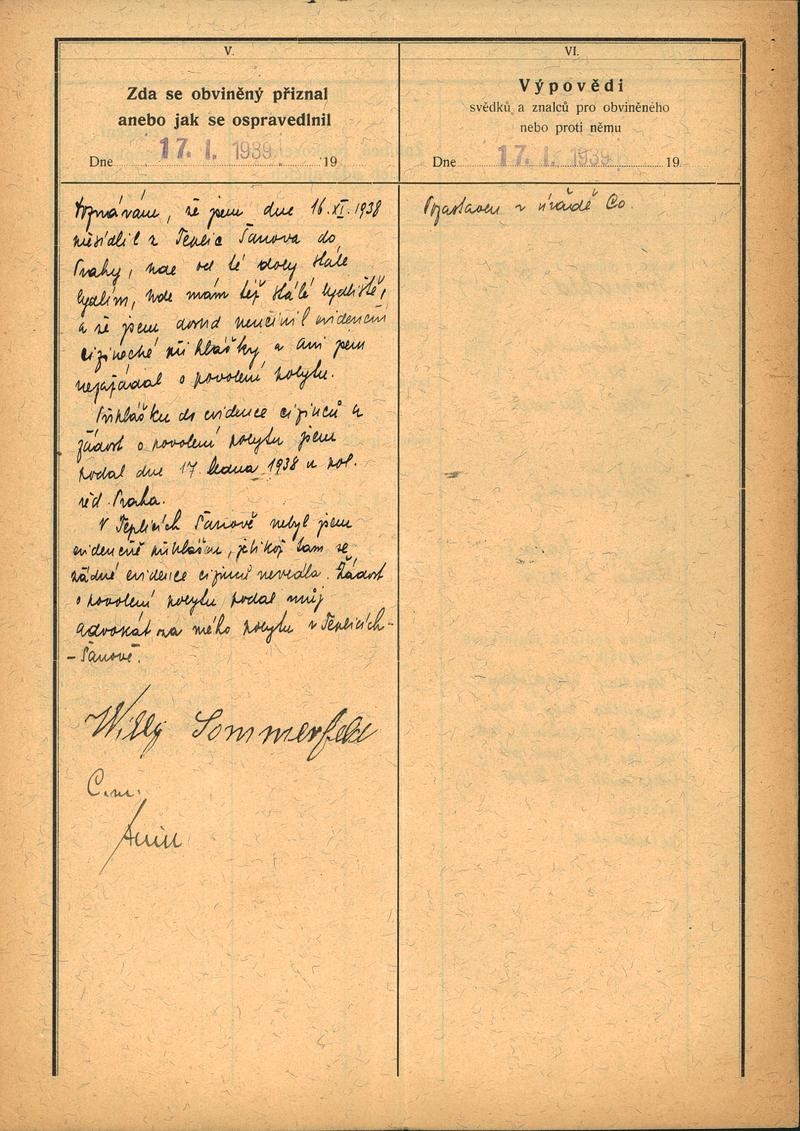 V.
Zda se obviněný přiznal
anebo jak se ospravedlnil
Dne 17. I. 1939 19
Doznávám, že jsem dne 16. XI. 1938
přesídlil z Teplic Šanova do
Prahy, kde od té doby stále
bydlím, kde mám též stálé bydliště,
a že jsem dosud neučinil evidenční
cizinecké přihlášky a ani jsem
nezažádal o povolení pobytu.
Přihlášku do evidence cizinců a
žádost o povolení pobytu jsem
podal dne 17. ledna 1938 u pol.
řed. Praha.
V Teplicích Šanově nebyl jsem
evidenčně přihlášen, jelikož tam se
žádné evidence cizinců nevedla. Žádost
o povolení pobytu podal můj
advokát za mého pobytu v Teplicích-
-Šanově.
Willy Sommerfeld
C.m.
VI.
Výpovědi
svědků a znalců pro obviněného
nebo proti němu
Dne 17. I. 1939 19
v úřadě Co.